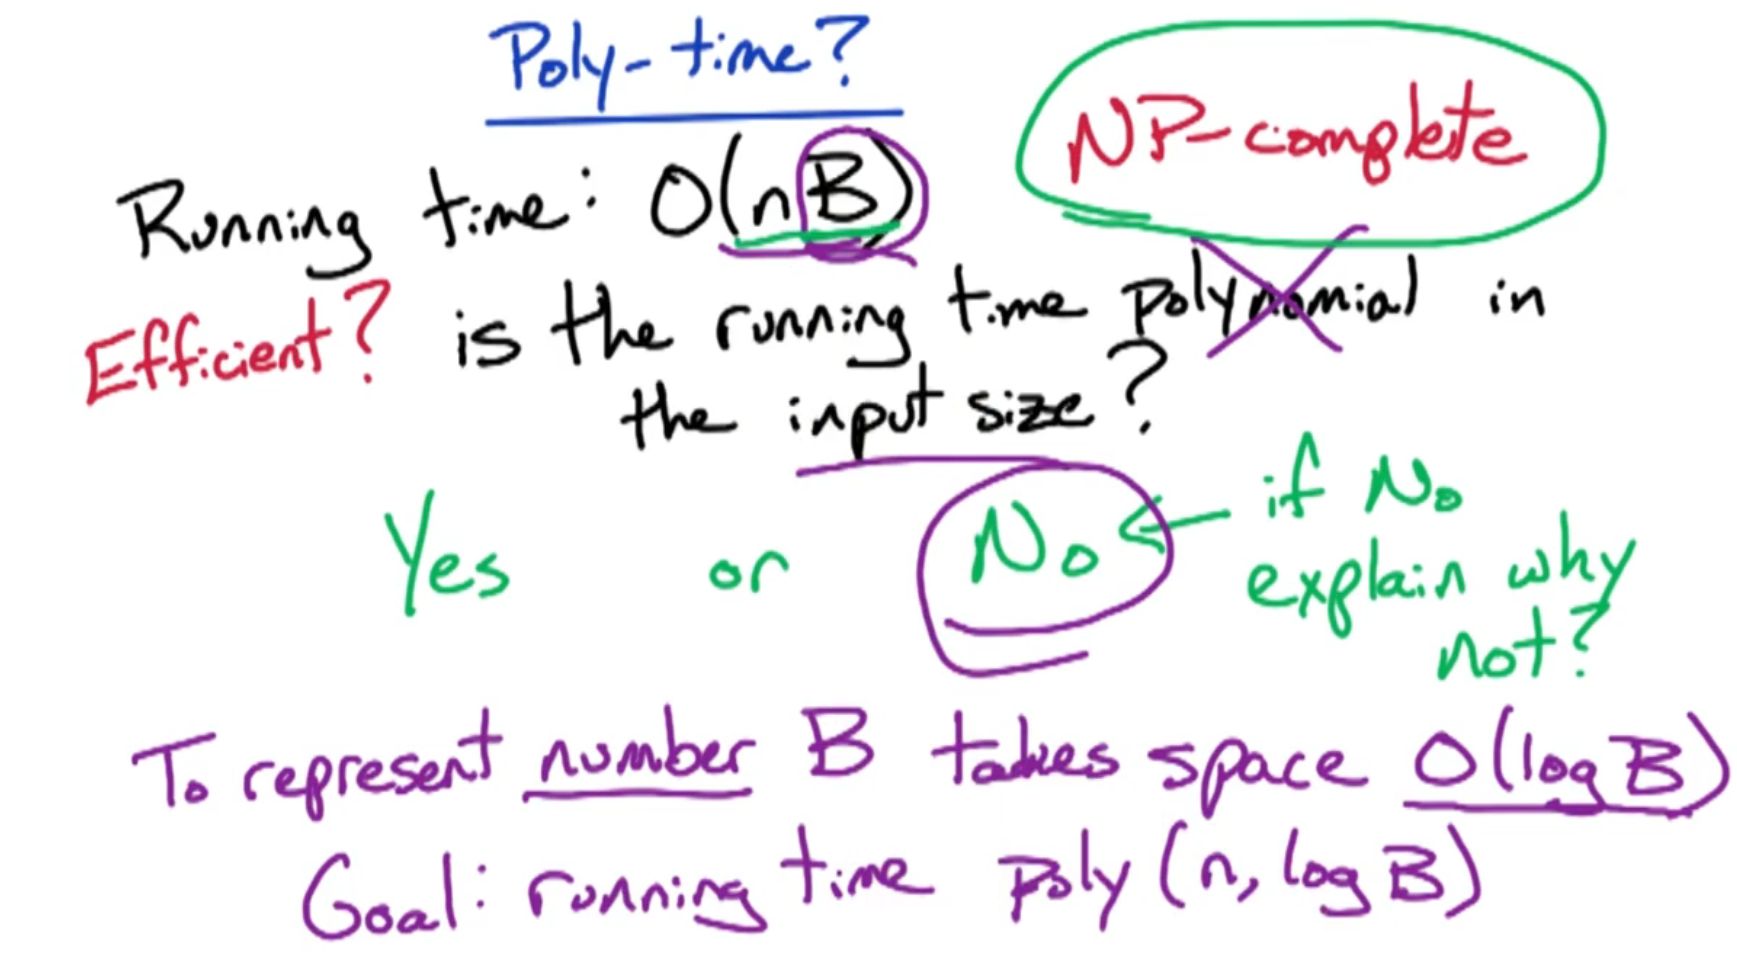 Poly-time?
NP-complete
Running time: O(nB)
Efficient? is the running time polynomial in
the input size?
Yes or No ← if No
explain why
not?
To represent number B takes space O(log B)
Goal: running time poly(n, log B)